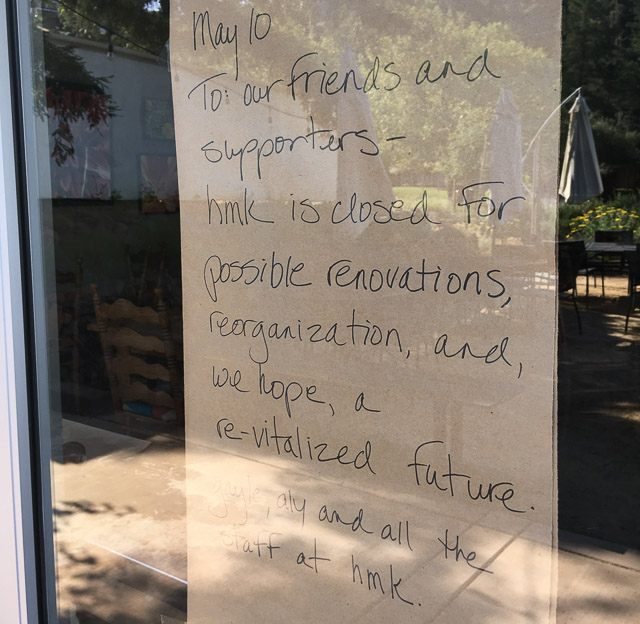 May 10
To: our friends and
supporters-
hmk is closed for
possible renovations,
reorganization, and,
we hope, a
re-vitalized future.
gayle, aly and all the
staff at hmk.